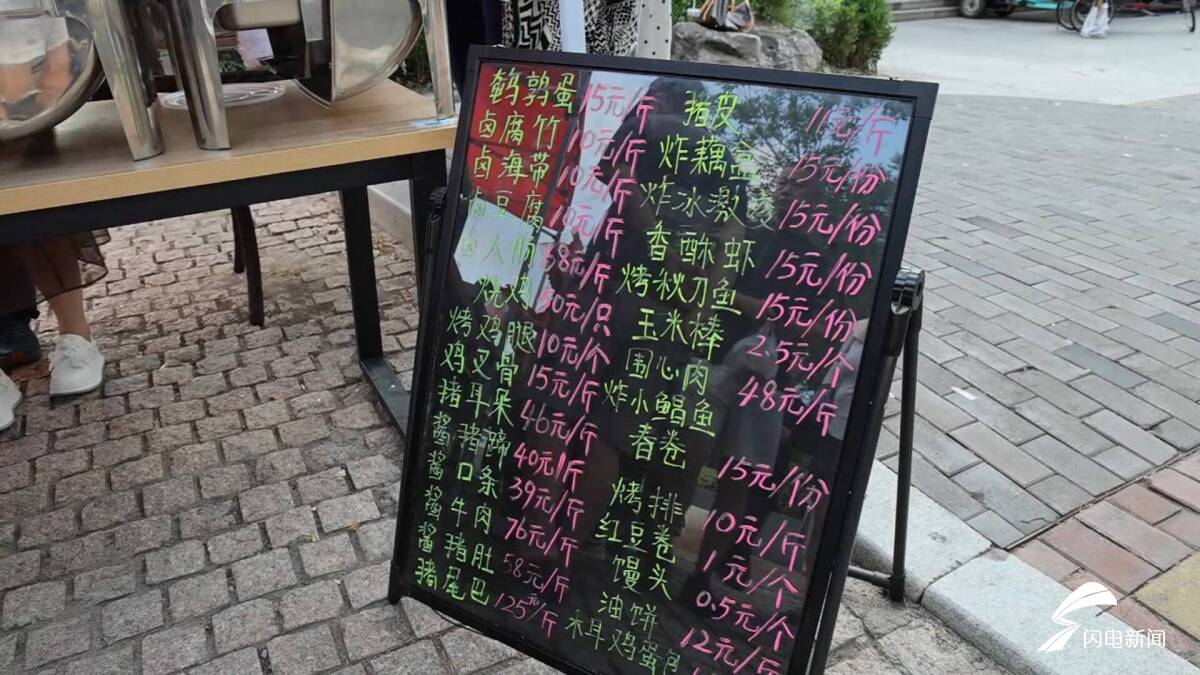 鹌鹑蛋 15元/斤
卤腐竹 10元/斤
卤海带 10元/斤
卤豆腐 10元/斤
58元/斤
烧鸡 30元/只
烤鸡腿 10元/个
鸡叉骨 15元/斤
猪耳朵 46元/斤
酱猪蹄 40元/斤
酱口条 39元/斤
酱牛肉 76元/斤
酱猪肚 58元/斤
猪尾巴 125元/斤
11元/斤
炸藕盒 15元/份
炸冰激凌 15元/份
香酥虾 15元/份
烤秋刀鱼 15元/份
玉米棒 2.5元/个
围心肉 48元/斤
炸小鲳鱼
春卷 15元/份
烤排 10元/斤
红豆卷 1元/个
馒头 0.5元/个
油饼 12元/斤
木耳鸡蛋包
闪电新闻